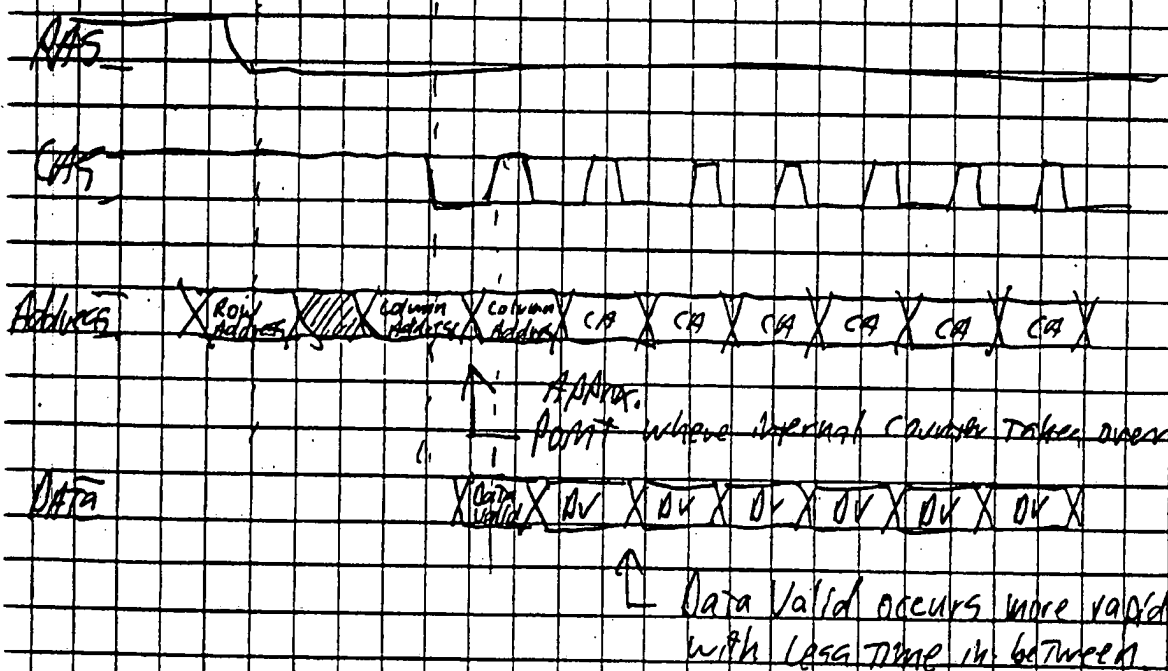 RAS
CAS
Address Row Address Column Address Column Address CA CA CA CA CA CA
Approx.
Point where internal counter takes over
Data Data Valid DV DV DV DV DV DV
Data Valid occurs more rapid
with less time in between